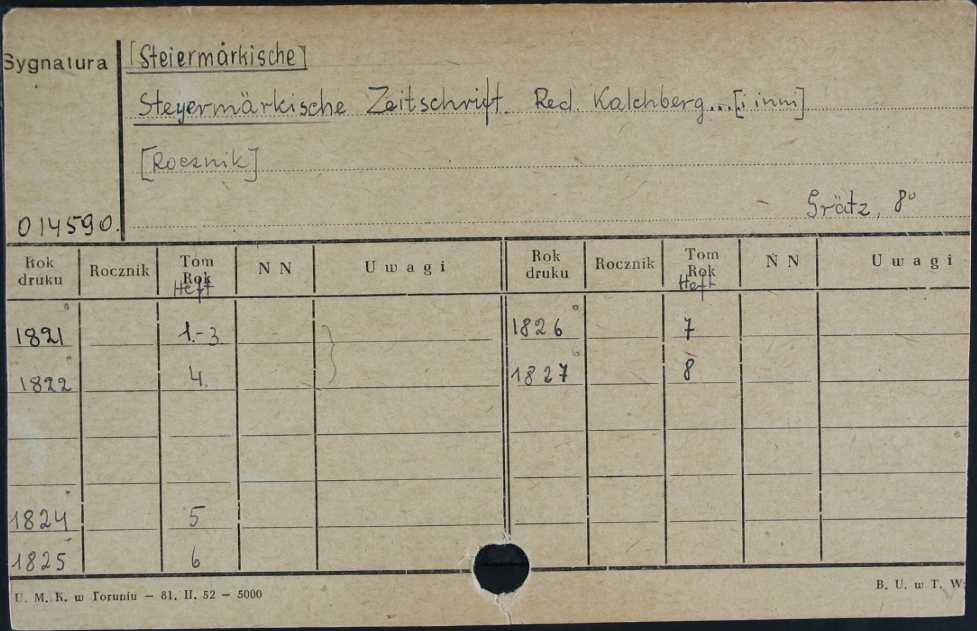 Sygnatura [Steiermärkische]
Steyermärkische Zeitschrift. Red. Kalchberg... [i inni]
[Rocznik]
Grätz, 8°
014590.
Rok druku Rocznik Tom Rok Heft N N Uwagi Rok druku Rocznik Tom Rok Heft N N Uwagi
1821 1.-3 1826 7
1822 4. 1827 8
1824 5
1825 6
U. M. K. w Toruniu — 81. II. 52 — 5000 B. U. w T. W